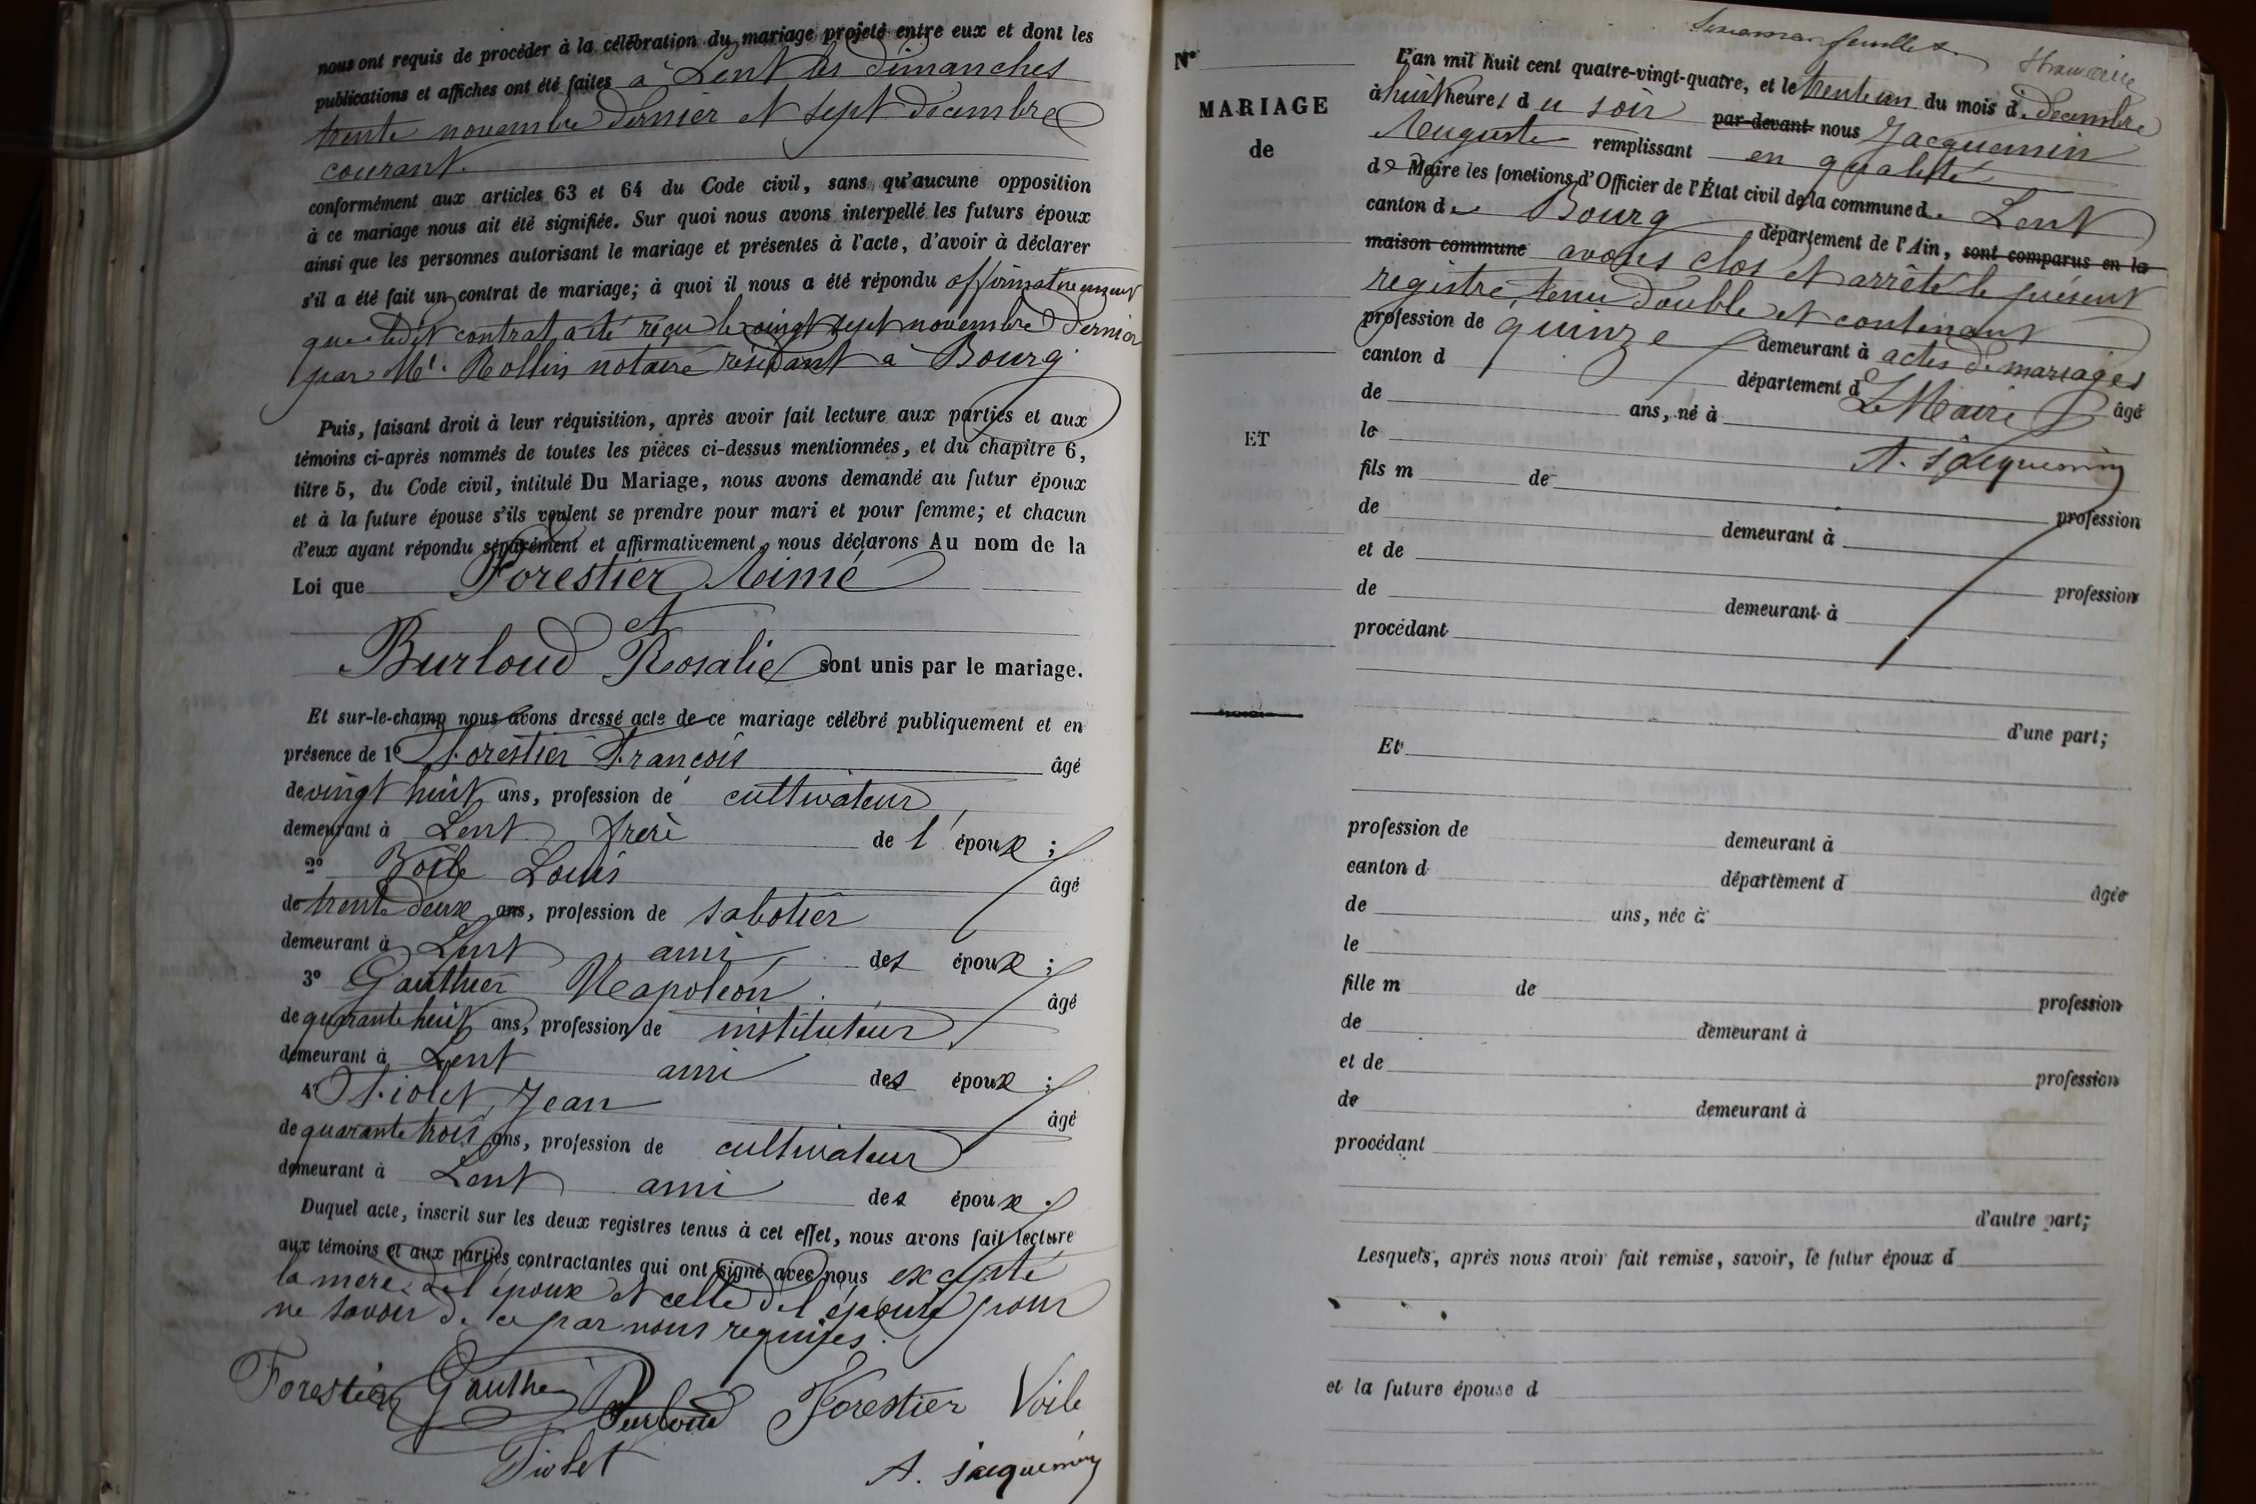 nous ont requis de procéder à la célébration du mariage projeté entre eux et dont les
publications et affiches ont été faites à Lent les dimanches
trente novembre dernier et sept décembre
courant.
conformément aux articles 63 et 64 du Code civil, sans qu'aucune opposition
à ce mariage nous ait été signifiée. Sur quoi nous avons interpellé les futurs époux
ainsi que les personnes autorisant le mariage et présentes à l'acte, d'avoir à déclarer
s'il a été fait un contrat de mariage; à quoi il nous a été répondu affirmativement
que ledit contrat a été reçu le vingt sept novembre dernier
par Me. Rollin notaire résidant à Bourg.
Puis, faisant droit à leur réquisition, après avoir fait lecture aux parties et aux
témoins ci-après nommés de toutes les pièces ci-dessus mentionnées, et du chapitre 6,
titre 5, du Code civil, intitulé Du Mariage, nous avons demandé au futur époux
et à la future épouse s'ils veulent se prendre pour mari et pour femme; et chacun
d'eux ayant répondu séparément et affirmativement, nous déclarons Au nom de la
Loi que Forestier Aimé
et
Burloud Rosalie sont unis par le mariage.
Et sur-le-champ nous avons dressé acte de ce mariage célébré publiquement et en
présence de 1° Forestier François âgé
de vingt huit ans, profession de cultivateur
demeurant à Lent frère de l'époux ;
2° Voile Louis âgé
de trente deux ans, profession de sabotier
demeurant à Lent ami des époux ;
3° Gauthier Napoléon âgé
de quarante huit ans, profession de instituteur
demeurant à Lent ami des époux ;
4° Fiolet Jean âgé
de quarante trois ans, profession de cultivateur
demeurant à Lent ami des époux.
Duquel acte, inscrit sur les deux registres tenus à cet effet, nous avons fait lecture
aux témoins et aux parties contractantes qui ont signé avec nous excepté
la mère de l'époux et celle de l'épouse pour
ne savoir de ce par nous requises.
Forestier Gauthier Burloud Forestier Voile
Fiolet A. Jacquemin
feuillet
N°
MARIAGE
de
ET
L'an mil huit cent quatre-vingt-quatre, et le trente un du mois de décembre
à huit heures du soir par-devant nous Jacquemin
Auguste remplissant en qualité
de Maire les fonctions d'Officier de l'État civil de la commune de Lent
canton de Bourg département de l'Ain, sont comparus en la
maison commune avons clos et arrêté le présent
registre, tenu double et contenant
profession de quinze demeurant à actes de mariages
canton d département d Le Maire âgé
de ans, né à
le A. Jacquemin
fils m de profession
de demeurant à
et de profession
de demeurant à
procédant
d'une part;
Et
profession de demeurant à
canton d département d âgée
de ans, née à
le
fille m de profession
de demeurant à
et de profession
de demeurant à
procédant
d'autre part;
Lesquels, après nous avoir fait remise, savoir, le futur époux d
et la future épouse d